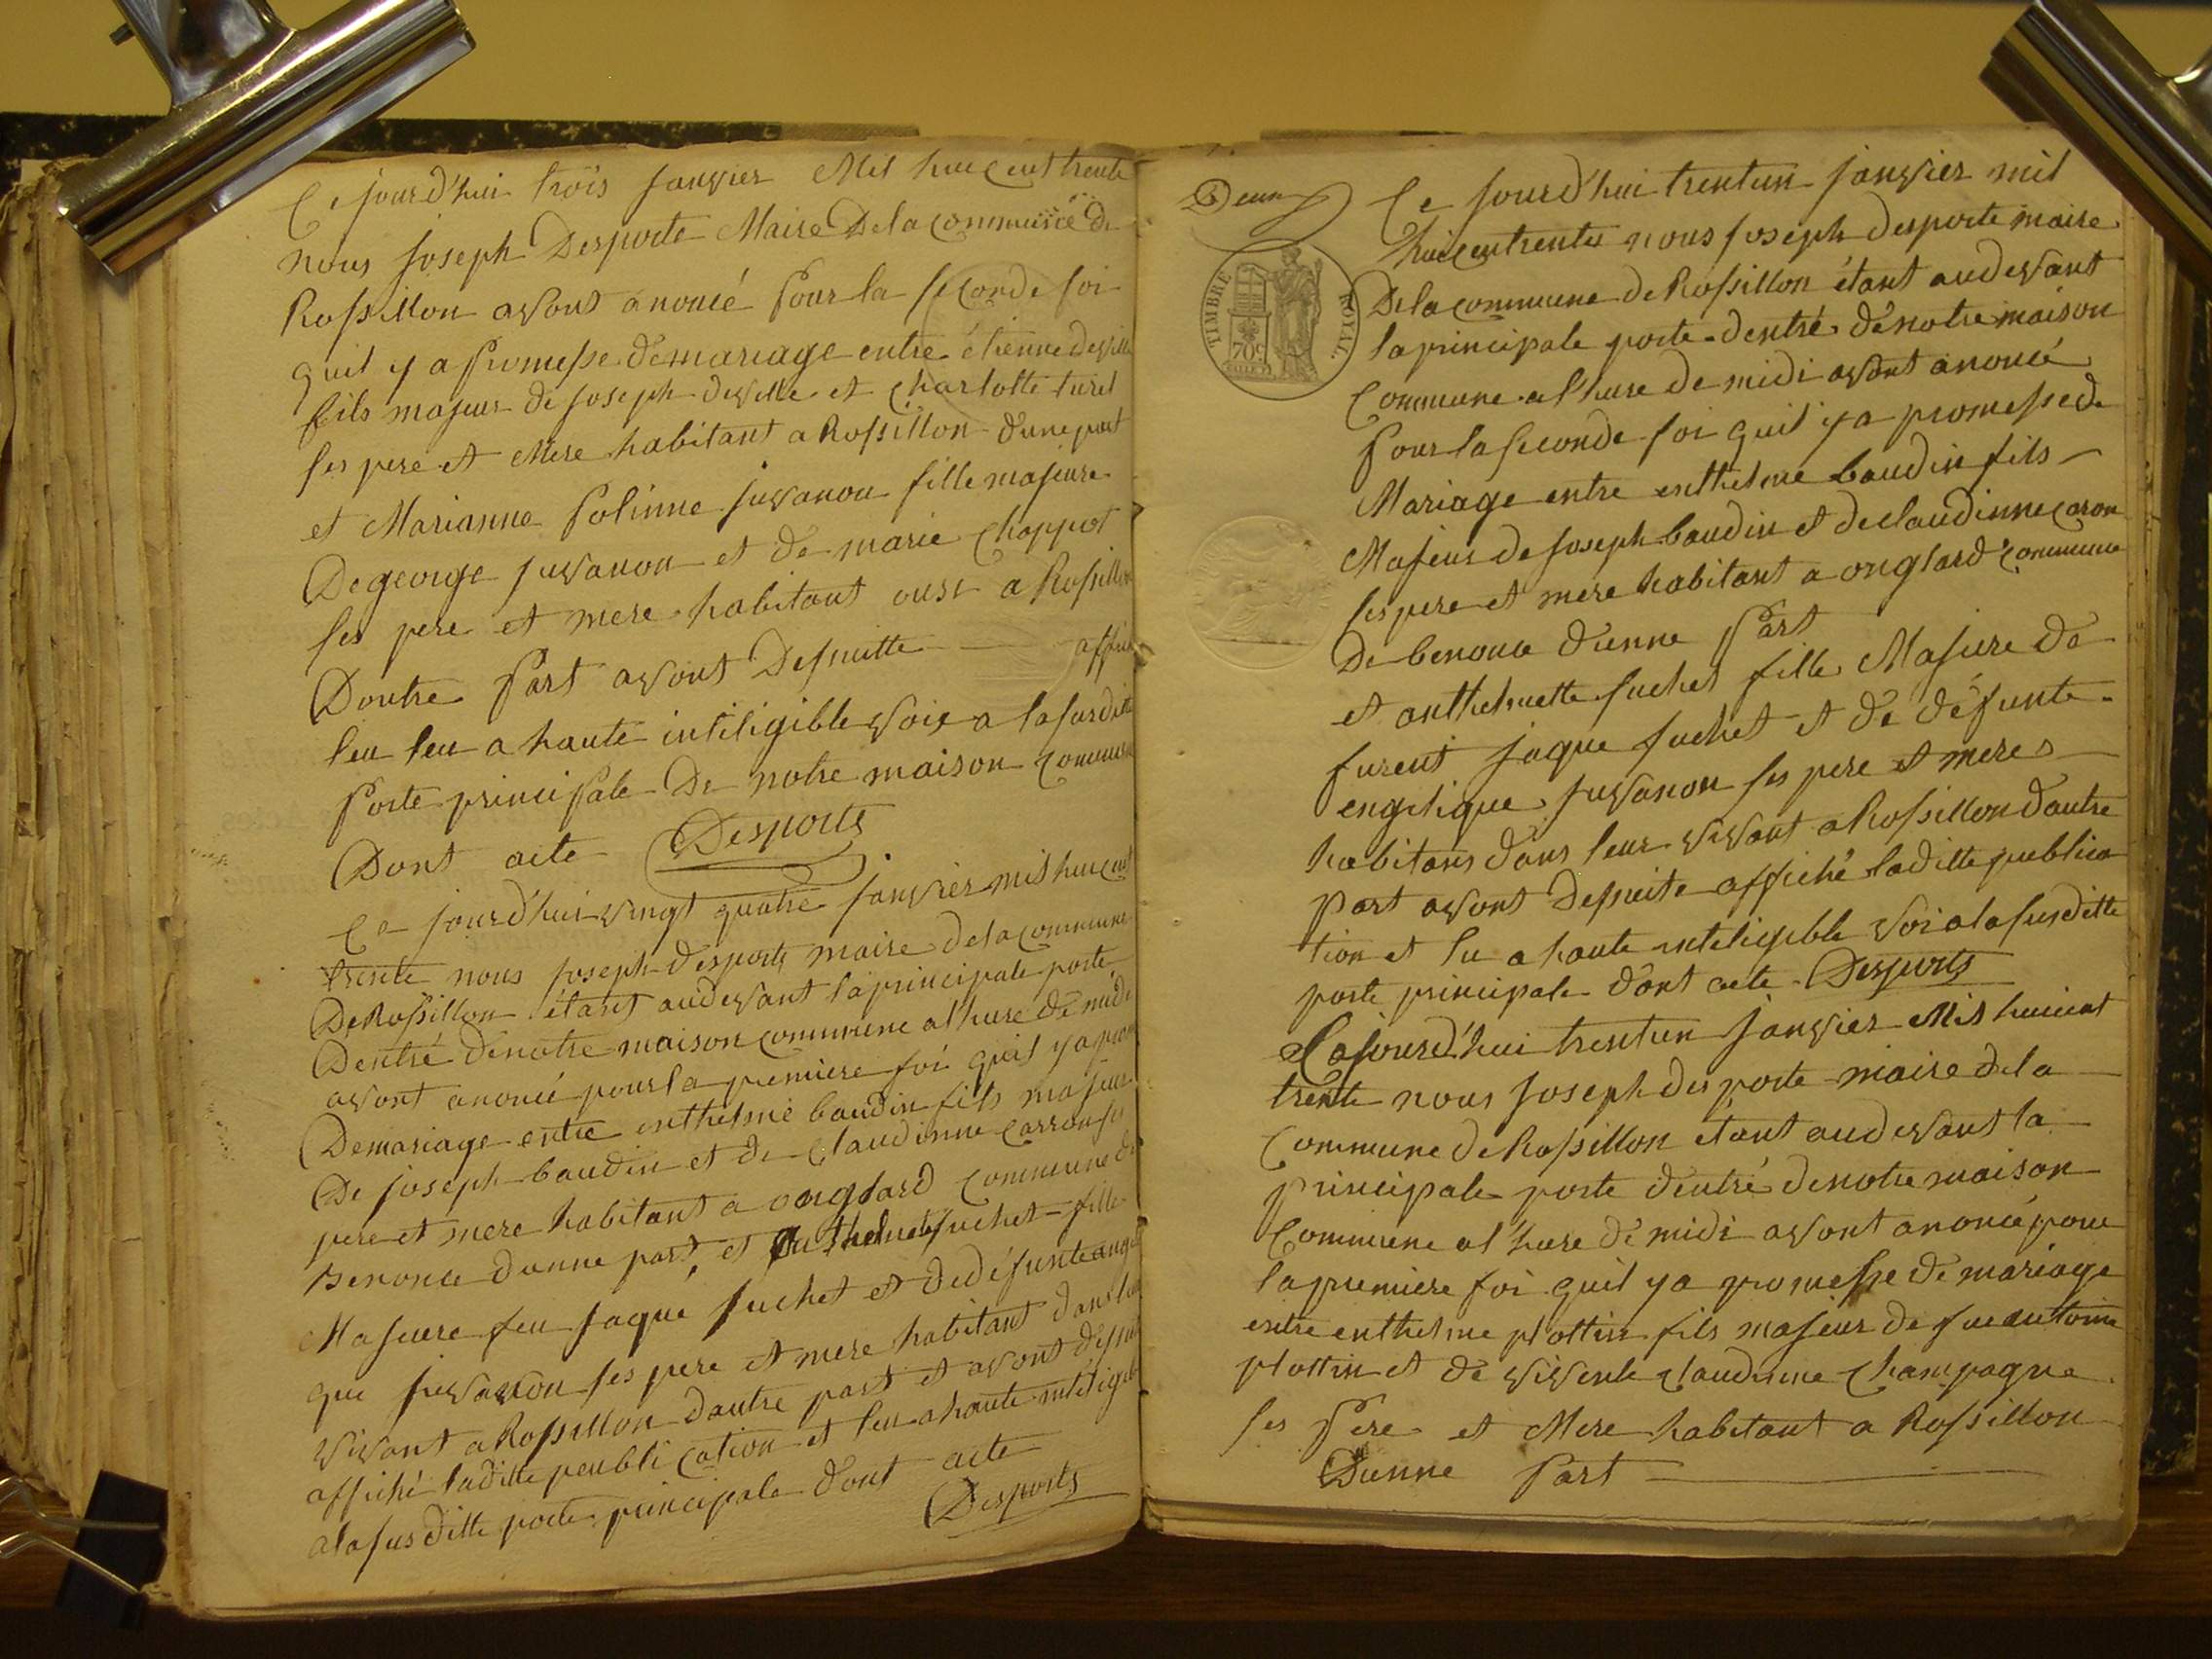 Ce jourd'hui trois janvier Mil huit cent trente
nous joseph Desporte Maire De la commune de
Rossillon avont anoncé pour la seconde foi
quil y a promesse de mariage entre étienne deville
fils majeur de joseph deville et charlotte
ses pere et Mere habitant a Rossillon dune part
et Marianne poline juvanon fille majeure
De george juvanon et de marie chappot
ses pere et mere habitant ousi a Rossillon
Doutre part avont Desuitte
leu leu a haute inteligible voix a la susditte
porte principale De notre maison commune
Dont acte Desporte
Ce jourd'hui vingt quatre janvier mil huit cent
trente nous joseph desporte maire de la commune
De Rossillon étant audevant la principale porte
Dentré de notre maison commune a l'hure de midi
avont anoncé pour la premiere foi quil y a
De mariage entre enthelme baudin fils majeur
De joseph baudin et de claudinne carron ses
pere et mere habitant a onglard commune de
Benonce dunne part, et fuchet fille
Majeure feu jaque fuchet et de défunte ange
que juvanon ses pere et mere habitant dans leur
vivant a Rossillon dautre part et avont desuite
affiché laditte peublication et leu a haute inteligible
a la susditte porte principale dont acte
Desporte
Deux
TIMBRE ROYAL
70c
Ce jourd'hui trentun janvier mil
huit cent trente nous joseph desporte maire
De la commune de Rossillon étant audevant
la principale porte dentré de notre maison
Commune a l'hure de midi avont anoncé
pour la seconde foi quil y a promesse de
Mariage entre enthelme baudin fils
Majeur de joseph baudin et de claudinne caron
ses pere et mere habitant a onglard commune
De benonce dunne part
et anthelmette fuchet fille Majeure de
furent jaque fuchet et de défunte
engelique juvanon ses pere et meres
habitans dans leur vivant a Rossillon dautre
part avont Desuite affiché laditte publica
tion et lu a haute inteligible voi a la susditte
porte principale dont acte Desporte
Cejourd'hui trentun janvier Mil huit cent
trente nous joseph desporte maire de la
Commune de Rossillon étant audevant la
principale porte dentré de notre maison
Commune a l'hure de midi avont anoncé pour
la premiere foi quil y a promesse de mariage
entre enthelme plottin fils majeur de feu antoine
plottin et de vivente claudinne Champagne
ses pere et Mere habitant a Rossillon
Dunne part